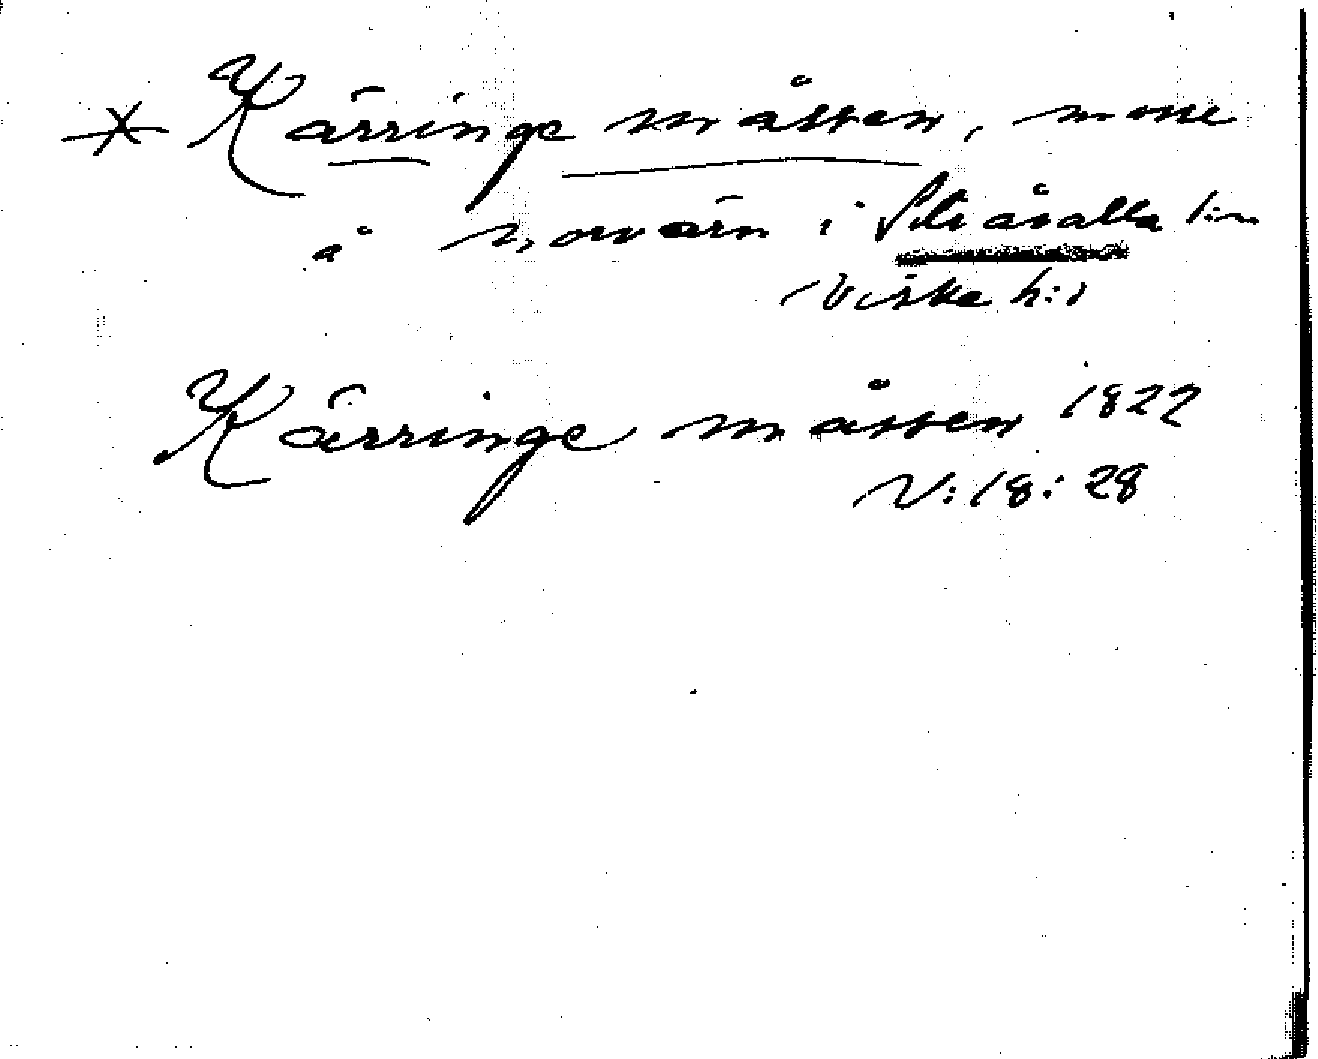 * Kärringe måssen, mosse
å norrärn i Stråvalla sn
Viske h:d
Kärringe måssen 1822
V:18:28